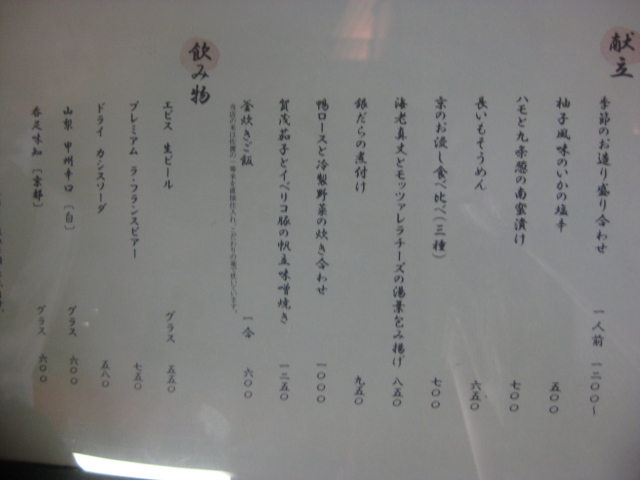 献立
季節のお造り盛り合わせ 一人前 一二〇〇～
柚子風味のいかの塩辛 五〇〇
ハモと九条葱の南蛮漬け 七〇〇
長いもそうめん 六五〇
京のお浸し食べ比べ(三種) 七〇〇
海老真丈とモッツァレラチーズの湯葉包み揚げ 八五〇
銀だらの煮付け 九五〇
鴨ロースと冷製野菜の炊き合わせ 一〇〇〇
賀茂茄子とイベリコ豚の帆立味噌焼き 一二五〇
釜炊きご飯 一合 六〇〇
飲み物
エビス 生ビール グラス 五五〇
プレミアム ラ・フランスビアー 七五〇
ドライ カシスソーダ 五八〇
山梨 甲州辛口 [白] グラス 六〇〇
呑足味知 [京都] グラス 六〇〇